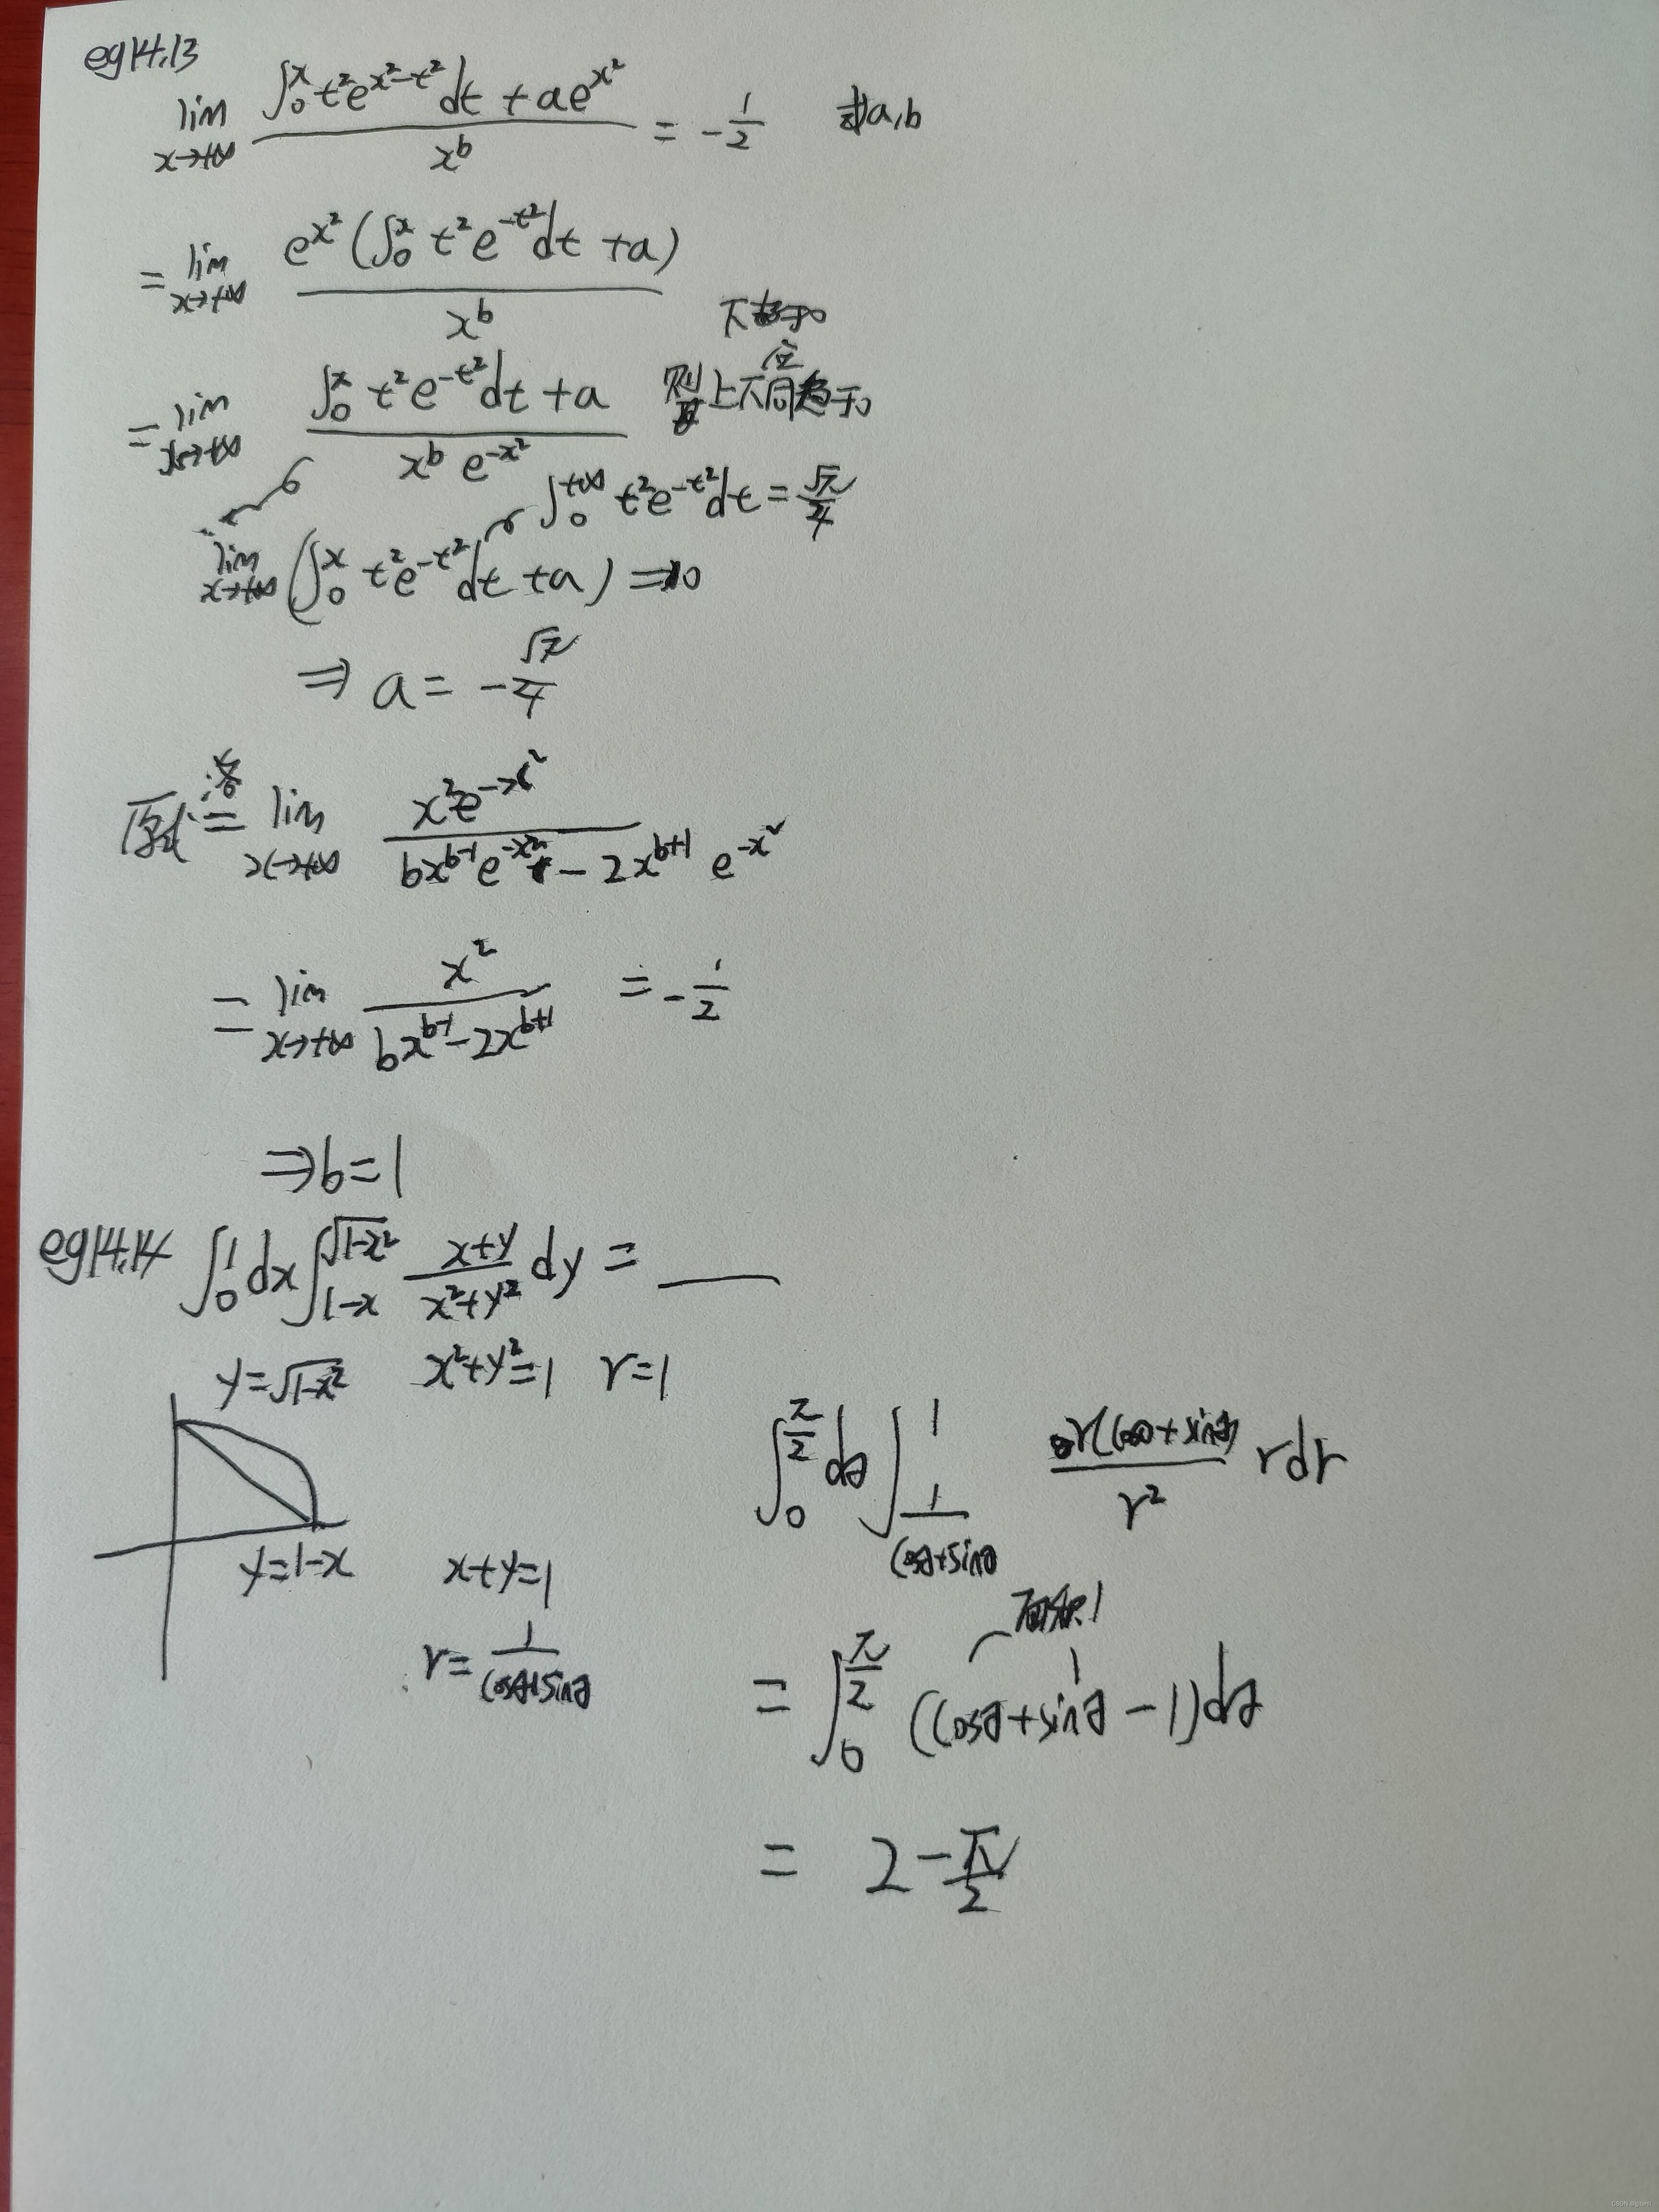 eg14.13
lim x→+∞ (∫₀ˣ t²e^(x²-t²)dt + ae^(x²)) / x^b = -1/2 求a,b
= lim x→+∞ e^(x²)(∫₀ˣ t²e^(-t²)dt + a) / x^b
下趋于0
= lim x→+∞ (∫₀ˣ t²e^(-t²)dt + a) / (x^b e^(-x²)) 则上下应同趋于0
∫₀^(+∞) t²e^(-t²)dt = √π/4
lim x→+∞ (∫₀ˣ t²e^(-t²)dt + a) ⇒ 0
⇒ a = -√π/4
原式 洛= lim x→+∞ x²e^(-x²) / (bx^(b-1)e^(-x²) - 2x^(b+1) e^(-x²))
= lim x→+∞ x² / (bx^(b-1) - 2x^(b+1)) = -1/2
⇒ b = 1
eg14.14 ∫₀¹dx∫_(1-x)^(√(1-x²)) (x+y)/(x²+y²) dy = ____
y=√(1-x²) x²+y²=1 r=1
y=1-x x+y=1
r = 1/(cosθ+sinθ)
∫₀^(π/2) dθ ∫_(1/(cosθ+sinθ))^1 r(cosθ+sinθ)/r² rdr
= ∫₀^(π/2) (cosθ+sinθ-1)dθ
= 2 - π/2
CSDN